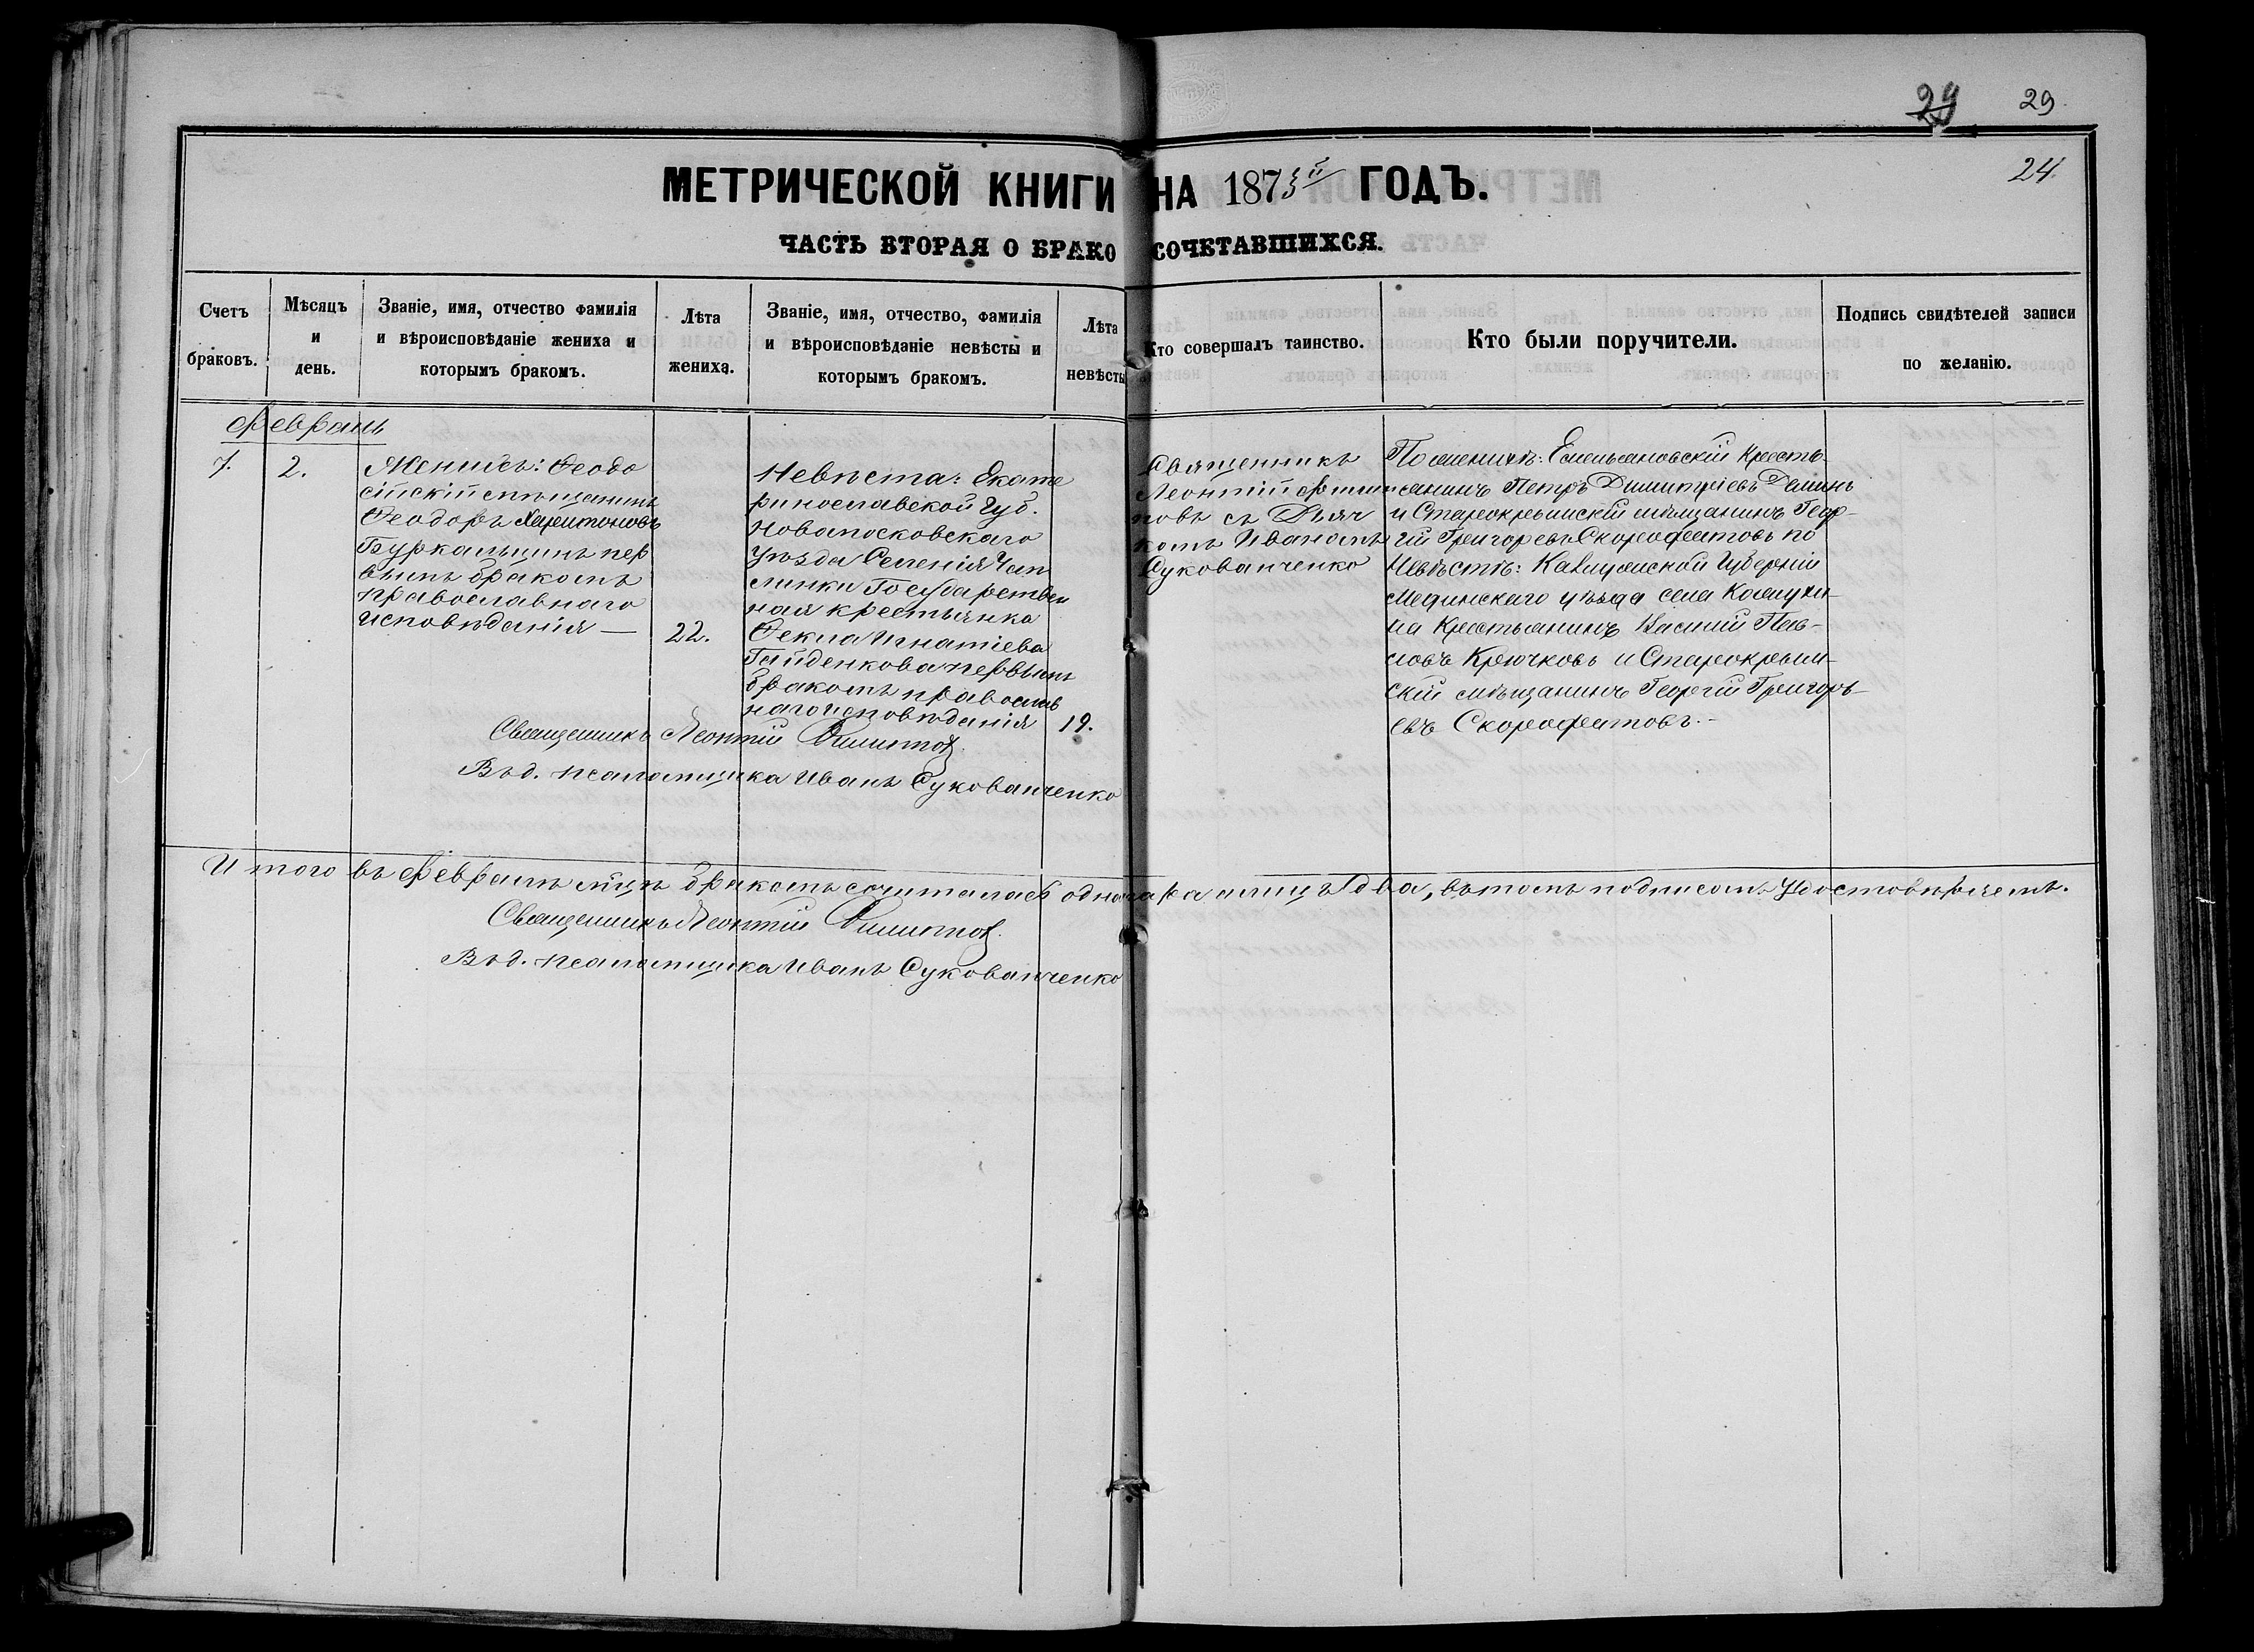 29 29
24.
МЕТРИЧЕСКОЙ КНИГИ НА 1873й ГОДЪ.
ЧАСТЬ ВТОРАЯ О БРАКОСОЧЕТАВШИХСЯ.
Счетъ браковъ.
Мѣсяцъ и день.
Званіе, имя, отчество фамилія и вѣроисповѣданіе жениха и которымъ бракомъ.
Лѣта жениха.
Званіе, имя, отчество, фамилія и вѣроисповѣданіе невѣсты и которымъ бракомъ.
Лѣта невѣсты
Кто совершалъ таинство.
Кто были поручители.
Подпись свидѣтелей записи по желанію.
Февраль
7.
2.
Женихъ: Ѳеодо
сійскій мѣщанинъ
Ѳеодоръ Харитоновъ
Буркальцинъ пер
вымъ бракомъ
православнаго
исповѣданія —
22.
Невѣста: Екате
ринославской Губ.
Новомосковскаго
уѣзда Селенія Чап
линки Государствен
ная крестьянка
Ѳекла Игнатіева
Гайденкова первымъ
бракомъ православ
наго исповѣданія
19.
Священникъ
Леонтій Филип
повъ съ Дьяч
комъ Иваномъ
Сукованченко
По женихѣ: Емельановскій Кресть-
янинъ Петръ Димитріевъ Деминъ
и Старокрымскій мѣщанинъ Геор-
гій Григорьевъ Скорофеитовъ по
Невѣстѣ: Калужской Губерніи
Мединскаго уѣзда села
на Крестьянинъ Василій Пав-
ловъ Крючковъ и Старокрым-
скій мѣщанинъ Георгій Григорь-
евъ Скорофеитовъ.-
Священникъ Леонтій Филиппов
В. д. псаломщика Иванъ Сукованченко
Итого въ Февралѣ м̃цѣ бракомъ сочиталась одна пара а лицъ два, въ томъ подписомъ удостовѣряемъ.
Священникъ Леонтій Филиппов
В. д. псаломщика Иванъ Сукованченко